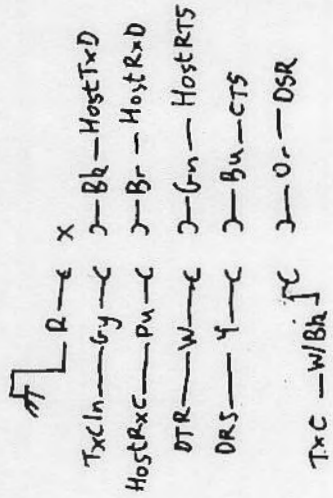 R X
TxCIn — Gy — Bk — HostTxD
HostRxC — Pu — Br — HostRxD
DTR — W — Gn — HostRTS
DRS — Y — Bu — CTS
TxC — W/Bk Or — DSR